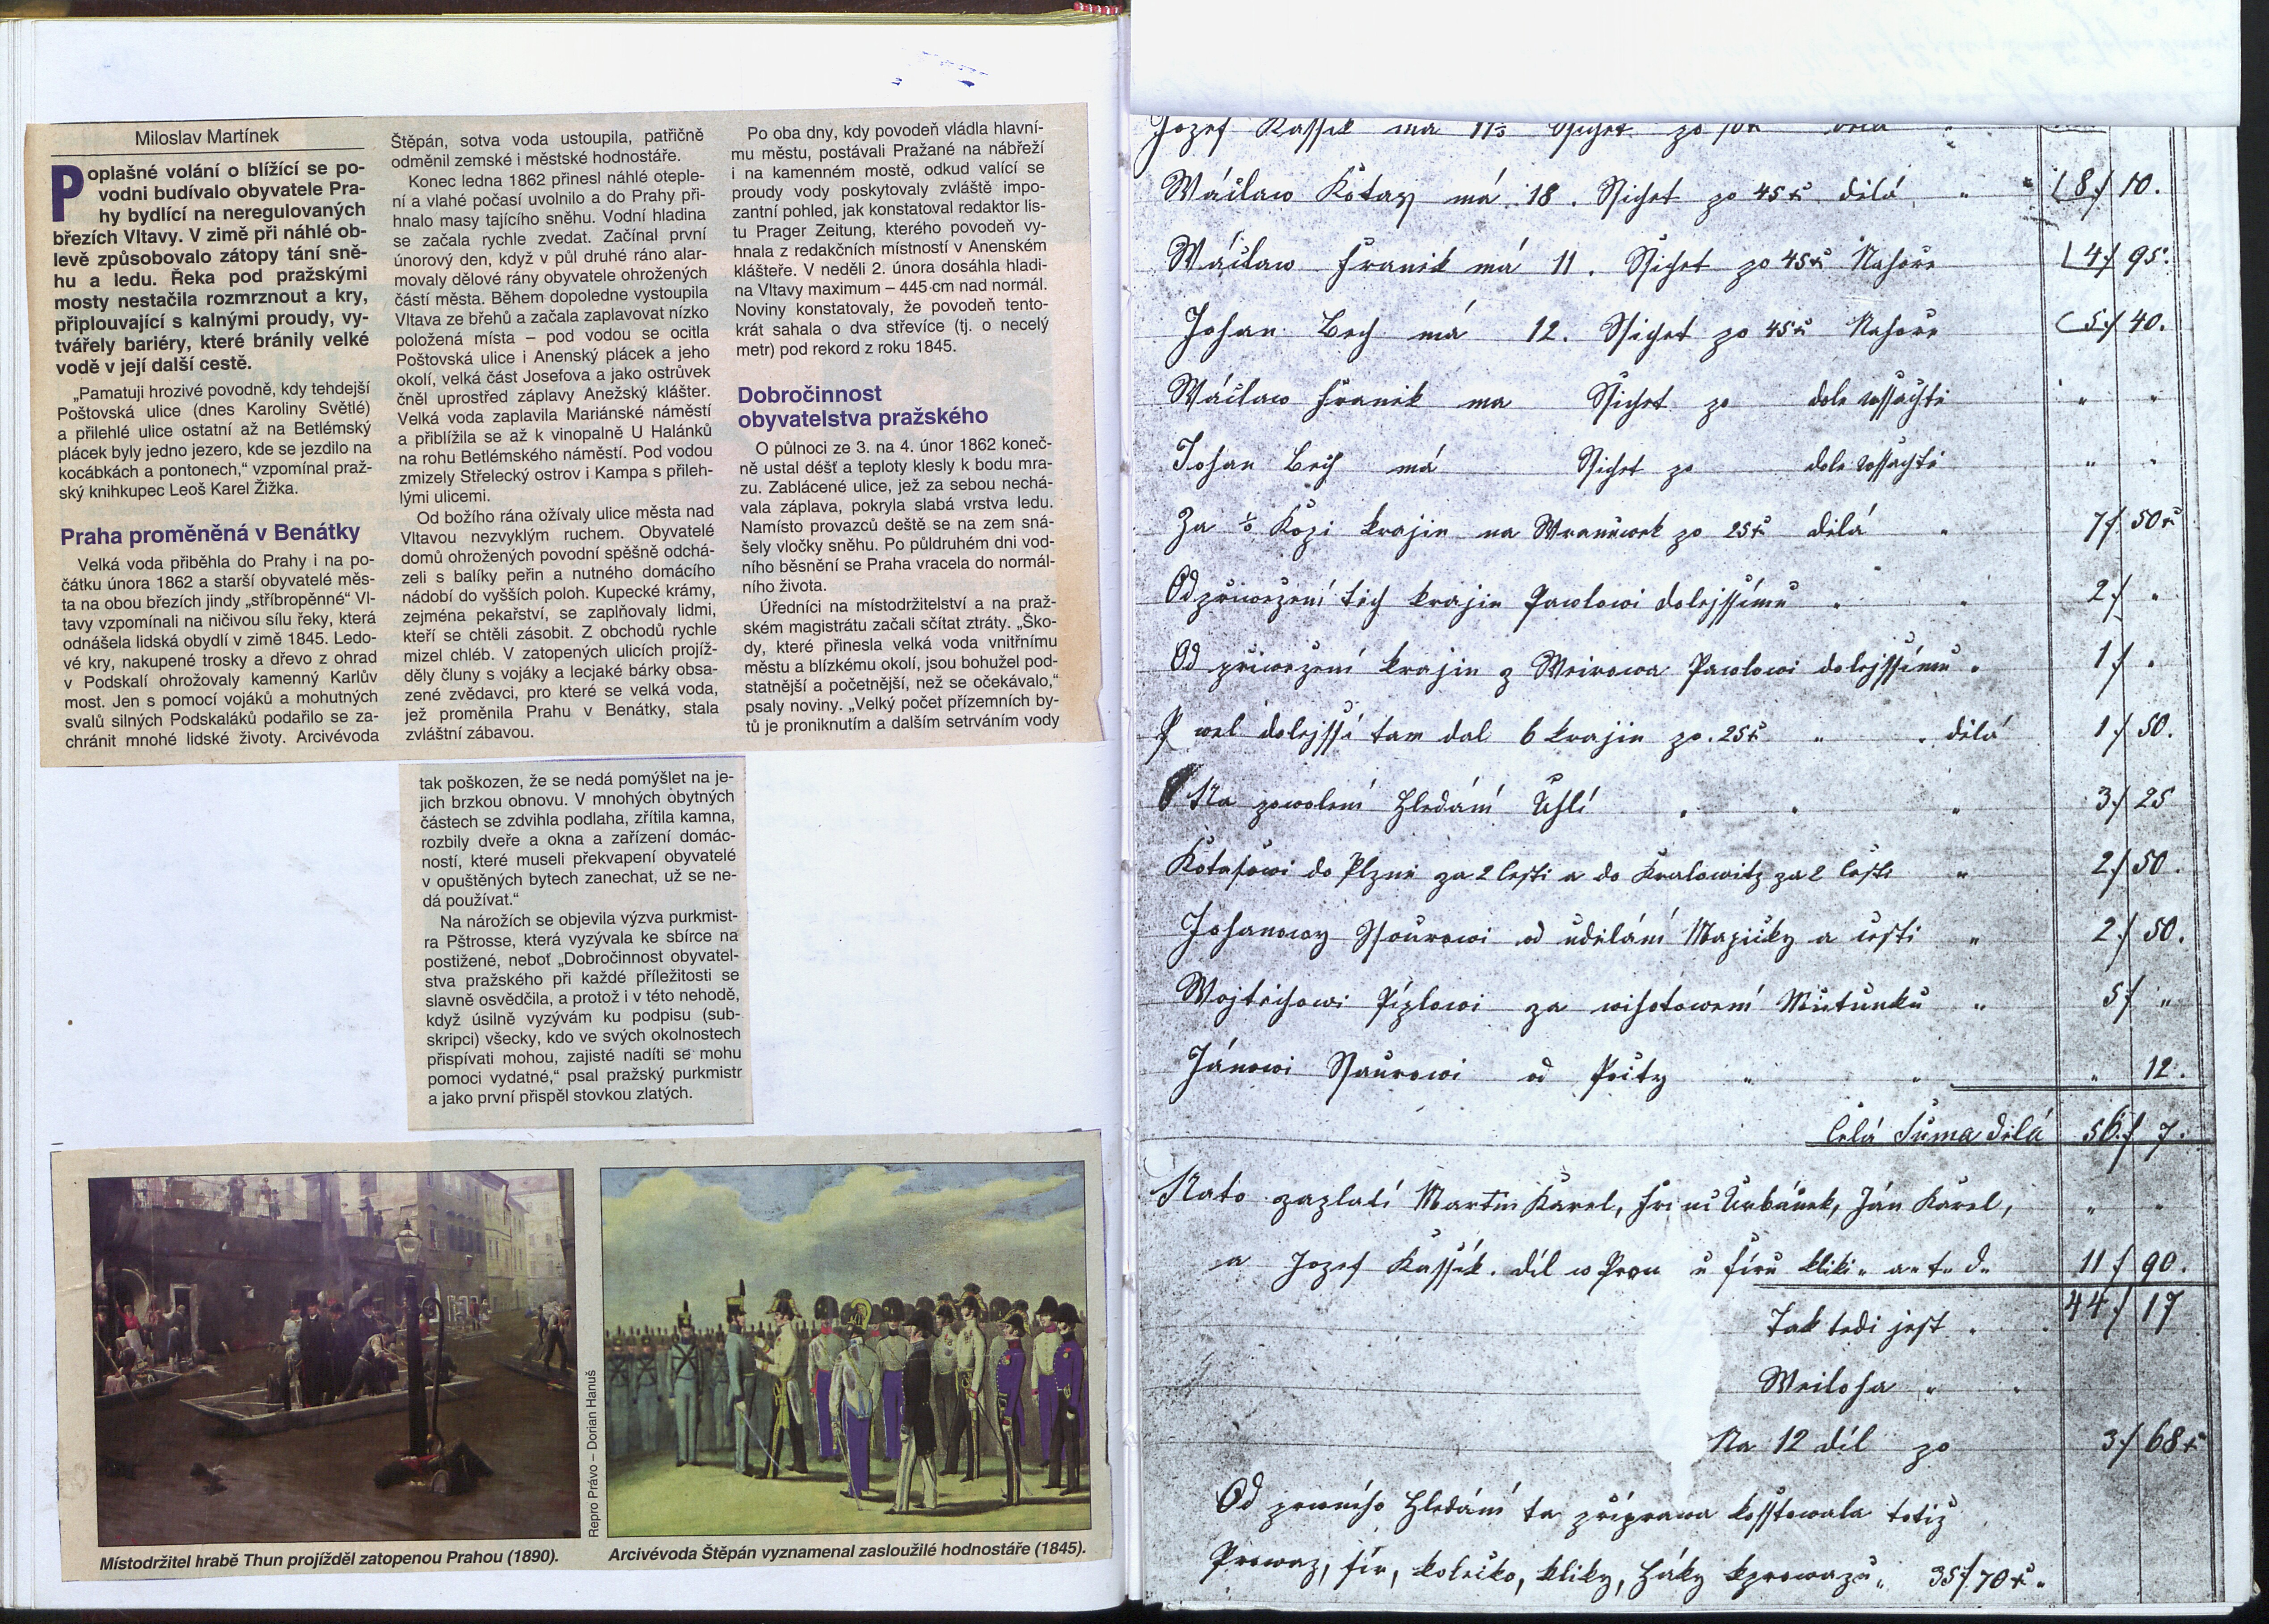 Miloslav Martínek
Poplašné volání o blížící se po-
vodni budívalo obyvatele Pra-
hy bydlící na neregulovaných
březích Vltavy. V zimě při náhlé ob-
levě způsobovalo zátopy tání sně-
hu a ledu. Řeka pod pražskými
mosty nestačila rozmrznout a kry,
připlouvající s kalnými proudy, vy-
tvářely bariéry, které bránily velké
vodě v její další cestě.
„Pamatuji hrozivé povodně, kdy tehdejší
Poštovská ulice (dnes Karoliny Světlé)
a přilehlé ulice ostatní až na Betlémský
plácek byly jedno jezero, kde se jezdilo na
kocábkách a pontonech,“ vzpomínal praž-
ský knihkupec Leoš Karel Žižka.
Praha proměněná v Benátky
Velká voda přiběhla do Prahy i na po-
čátku února 1862 a starší obyvatelé měs-
ta na obou březích jindy „stříbropěnné“ Vl-
tavy vzpomínali na ničivou sílu řeky, která
odnášela lidská obydlí v zimě 1845. Ledo-
vé kry, nakupené trosky a dřevo z ohrad
v Podskalí ohrožovaly kamenný Karlův
most. Jen s pomocí vojáků a mohutných
svalů silných Podskaláků podařilo se za-
chránit mnohé lidské životy. Arcivévoda
Štěpán, sotva voda ustoupila, patřičně
odměnil zemské i městské hodnostáře.
Konec ledna 1862 přinesl náhlé oteple-
ní a vlahé počasí uvolnilo a do Prahy při-
hnalo masy tajícího sněhu. Vodní hladina
se začala rychle zvedat. Začínal první
únorový den, když v půl druhé ráno alar-
movaly dělové rány obyvatele ohrožených
částí města. Během dopoledne vystoupila
Vltava ze břehů a začala zaplavovat nízko
položená místa – pod vodou se ocitla
Poštovská ulice i Anenský plácek a jeho
okolí, velká část Josefova a jako ostrůvek
čněl uprostřed záplavy Anežský klášter.
Velká voda zaplavila Mariánské náměstí
a přiblížila se až k vinopalně U Halánků
na rohu Betlémského náměstí. Pod vodou
zmizely Střelecký ostrov i Kampa s přileh-
lými ulicemi.
Od božího rána ožívaly ulice města nad
Vltavou nezvyklým ruchem. Obyvatelé
domů ohrožených povodní spěšně odchá-
zeli s balíky peřin a nutného domácího
nádobí do vyšších poloh. Kupecké krámy,
zejména pekařství, se zaplňovaly lidmi,
kteří se chtěli zásobit. Z obchodů rychle
mizel chléb. V zatopených ulicích projíž-
děly čluny s vojáky a lecjaké bárky obsa-
zené zvědavci, pro které se velká voda,
jež proměnila Prahu v Benátky, stala
zvláštní zábavou.
Po oba dny, kdy povodeň vládla hlavní-
mu městu, postávali Pražané na nábřeží
i na kamenném mostě, odkud valící se
proudy vody poskytovaly zvláště impo-
zantní pohled, jak konstatoval redaktor lis-
tu Prager Zeitung, kterého povodeň vy-
hnala z redakčních místností v Anenském
klášteře. V neděli 2. února dosáhla hladi-
na Vltavy maximum – 445 cm nad normál.
Noviny konstatovaly, že povodeň tento-
krát sahala o dva střevíce (tj. o necelý
metr) pod rekord z roku 1845.
Dobročinnost
obyvatelstva pražského
O půlnoci ze 3. na 4. únor 1862 koneč-
ně ustal déšť a teploty klesly k bodu mra-
zu. Zablácené ulice, jež za sebou nechá-
vala záplava, pokryla slabá vrstva ledu.
Namísto provazců deště se na zem sná-
šely vločky sněhu. Po půldruhém dni vod-
ního běsnění se Praha vracela do normál-
ního života.
Úředníci na místodržitelství a na praž-
ském magistrátu začali sčítat ztráty. „Ško-
dy, které přinesla velká voda vnitřnímu
městu a blízkému okolí, jsou bohužel pod-
statnější a početnější, než se očekávalo,“
psaly noviny. „Velký počet přízemních by-
tů je proniknutím a dalším setrváním vody
tak poškozen, že se nedá pomýšlet na je-
jich brzkou obnovu. V mnohých obytných
částech se zdvihla podlaha, zřítila kamna,
rozbily dveře a okna a zařízení domác-
ností, které museli překvapení obyvatelé
v opuštěných bytech zanechat, už se ne-
dá používat.“
Na nárožích se objevila výzva purkmist-
ra Pštrosse, která vyzývala ke sbírce na
postižené, neboť „Dobročinnost obyvatel-
stva pražského při každé příležitosti se
slavně osvědčila, a protož i v této nehodě,
když úsilně vyzývám ku podpisu (sub-
skripci) všecky, kdo ve svých okolnostech
přispívati mohou, zajisté nadíti se mohu
pomoci vydatné,“ psal pražský purkmistr
a jako první přispěl stovkou zlatých.
Repro Právo – Dorian Hanuš
Místodržitel hrabě Thun projížděl zatopenou Prahou (1890).
Arcivévoda Štěpán vyznamenal zasloužilé hodnostáře (1845).
Jozef Kassik ma
Wáclaw Kotas má 18. Sichet po 45 x dělá 8 f 10.
Wáclaw Franik má 11. Sichet po 45 x Nahoře 4 f 95.
Johan Bech má 12. Sichet po 45 x Nahoře 5 f 40.
Wáclaw Franik ma Sichet po dole
Johan Bech má Sichet po dole
Za Kopi krajin na po 25 x dělá 7 f 50 x
Od přiwezení tich krajin Pawlowi dolejssímu 2 f
Od přiwezení krajin z Weirowa Pawlowi dolejssímu 1 f
P wel dolejssí tam dal 6 krajin po 25 x dělá 1 f 50.
Na powolení Hledání Uhlí 3 f 25
Kotasowi do Plzně za 2 Cesti a do Kralowitz za 2 Cesti 2 f 50.
Johanowy od udělání a cesti 2 f 50.
Wojtěchowi Píglowi za wihotowení Mutunku 5 f
Jánowi od 12.
Celá Suma dělá 56 f 7.
Nato zaplatí Martin Karel, Urbánek, Ján Karel,
a Jozef Kassík. díl w kliki a. t. d. 11 f 90.
Tak tedi jest 44 f 17
Na 12 díl po 3 f 68 x
Od prwního Hledání ta příprawa kosstowala totiž
Prowaz, kolečko, kliky, Háky k prowazu 35 f 70 x